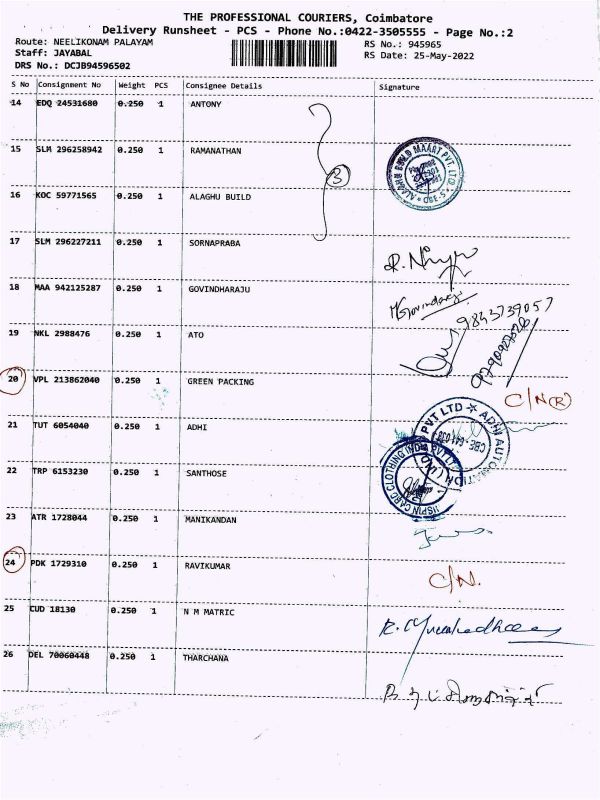 THE PROFESSIONAL COURIERS, Coimbatore
Delivery Runsheet - PCS - Phone No.:0422-3505555 - Page No.:2
Route: NEELIKONAM PALAYAM
RS No.: 945965
Staff: JAYABAL
RS Date: 25-May-2022
DRS No.: DCJB94596502
S No Consignment No Weight PCS Consignee Details Signature
14 EDQ 24531680 0.250 1 ANTONY
15 SLM 296258942 0.250 1 RAMANATHAN
3
16 KOC 59771565 0.250 1 ALAGHU BUILD
17 SLM 296227211 0.250 1 SORNAPRABA
18 MAA 942125287 0.250 1 GOVINDHARAJU
Govindaraj
9843739057
19 NKL 2988476 0.250 1 ATO
20 VPL 213862040 0.250 1 GREEN PACKING
C/N (R)
21 TUT 6054040 0.250 1 ADHI
22 TRP 6153230 0.250 1 SANTHOSE
23 ATR 1728044 0.250 1 MANIKANDAN
24 PDK 1729310 0.250 1 RAVIKUMAR
C/N.
25 CUD 18130 0.250 1 N M MATRIC
26 DEL 70060448 0.250 1 THARCHANA